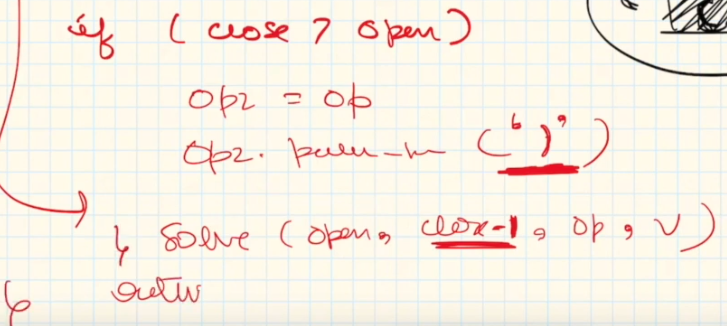 if ( close > open )
op2 = op
op2. push-b ( ')' )
↳ solve ( open, close-1, op, v )